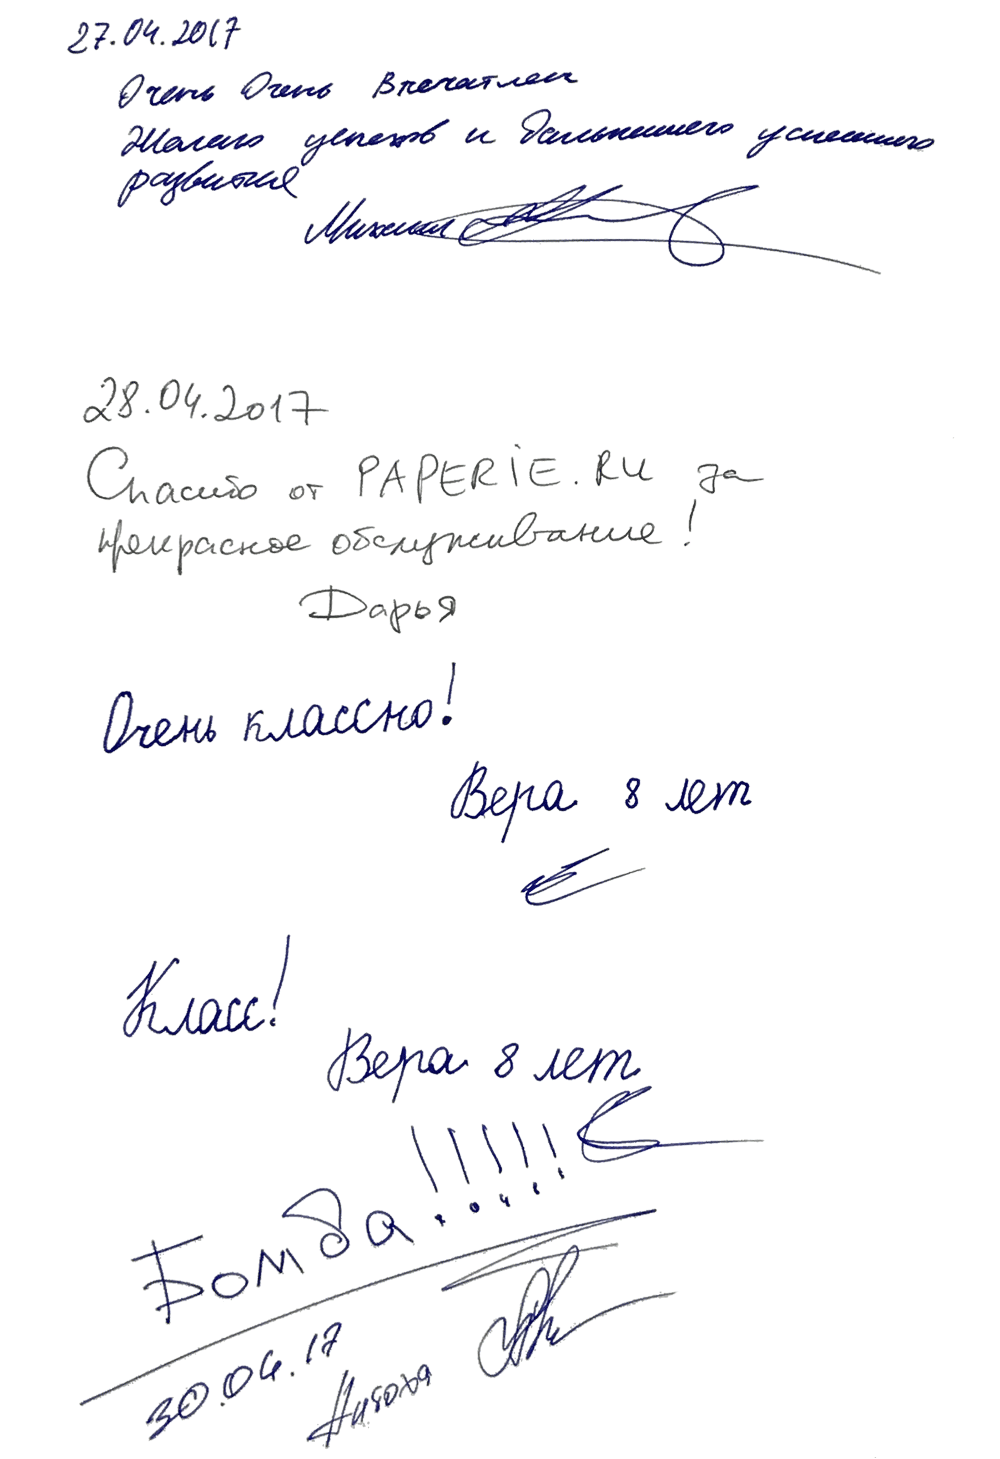 27.04.2017
Очень Очень Впечатлен
Желаю успехов и дальнейшего успешного
развития
Михаил
28.04.2017
Спасибо от PAPERIE.RU за
прекрасное обслуживание!
Дарья
Очень классно!
Вера 8 лет
Класс!
Вера 8 лет
Бомба!!!!!
30.04.17